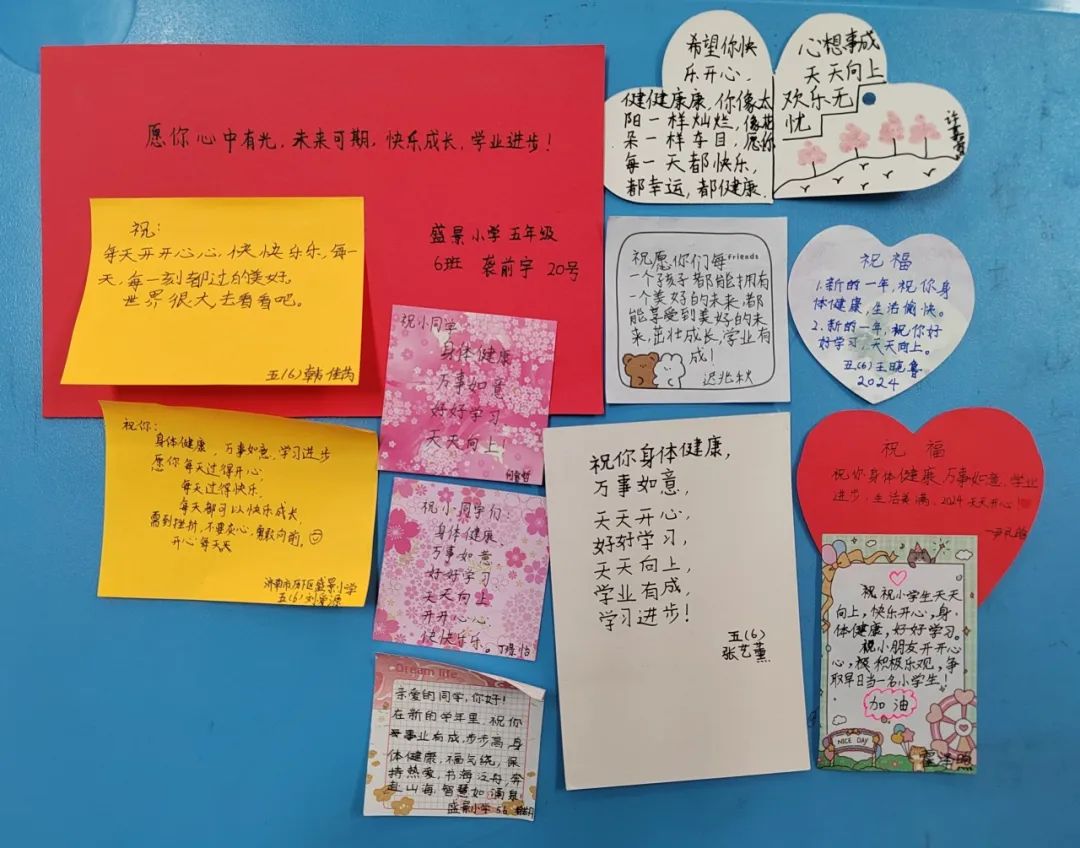 愿你心中有光，未来可期，快乐成长，学业进步！
盛景小学五年级
6班 裘前宇 20号
祝：
每天开开心心，快快乐乐，每一
天，每一刻都过的美好。
世界很大去看看吧。
五(6) 韩佳芮
祝你：
身体健康，万事如意，学习进步
愿你每天过得开心
每天过得快乐
每天都可以快乐成长
遇到挫折，不要灰心，勇敢向前。
开心每天天
济南市历下区盛景小学
五(6)
祝小同学
身体健康
万事如意
好好学习
天天向上！
祝小同学们：
身体健康
万事如意
好好学习
天天向上
开开心心
快快乐乐。
Dream life
亲爱的同学，你好！
在新的学年里，祝你
事业有成，步步高，身
体健康，福气绕，保
持热爱，书海泛舟，奔
赴山海，智慧如涌泉
盛景小学 5.6
希望你快
乐开心，
健健康康，你像太
阳一样灿烂，像花
朵一样夺目，愿你
每一天都快乐，
都幸运，都健康.
心想事成
天天向上
欢乐无
忧
Friends
祝愿你们每
一个孩子都能拥有
一个美好的未来，都
能享受到美好的未
来，茁壮成长，学业有
成！
迟兆秋
祝福
1.新的一年，祝你身
体健康，生活愉快。
2.新的一年，祝你好
好学习，天天向上。
五(6)王晓鲁
2024
祝你身体健康，
万事如意，
天天开心，
好好学习，
天天向上，
学业有成，
学习进步！
五(6)
张艺薰
祝 福
祝你身体健康，万事如意，学业
进步，生活美满，2024天天开心！
祝祝小学生天天
向上，快乐开心，身
体健康，好好学习。
祝小朋友开开心
心，极积极乐观，争
取早日当一名小学生！
加油
NICE DAY